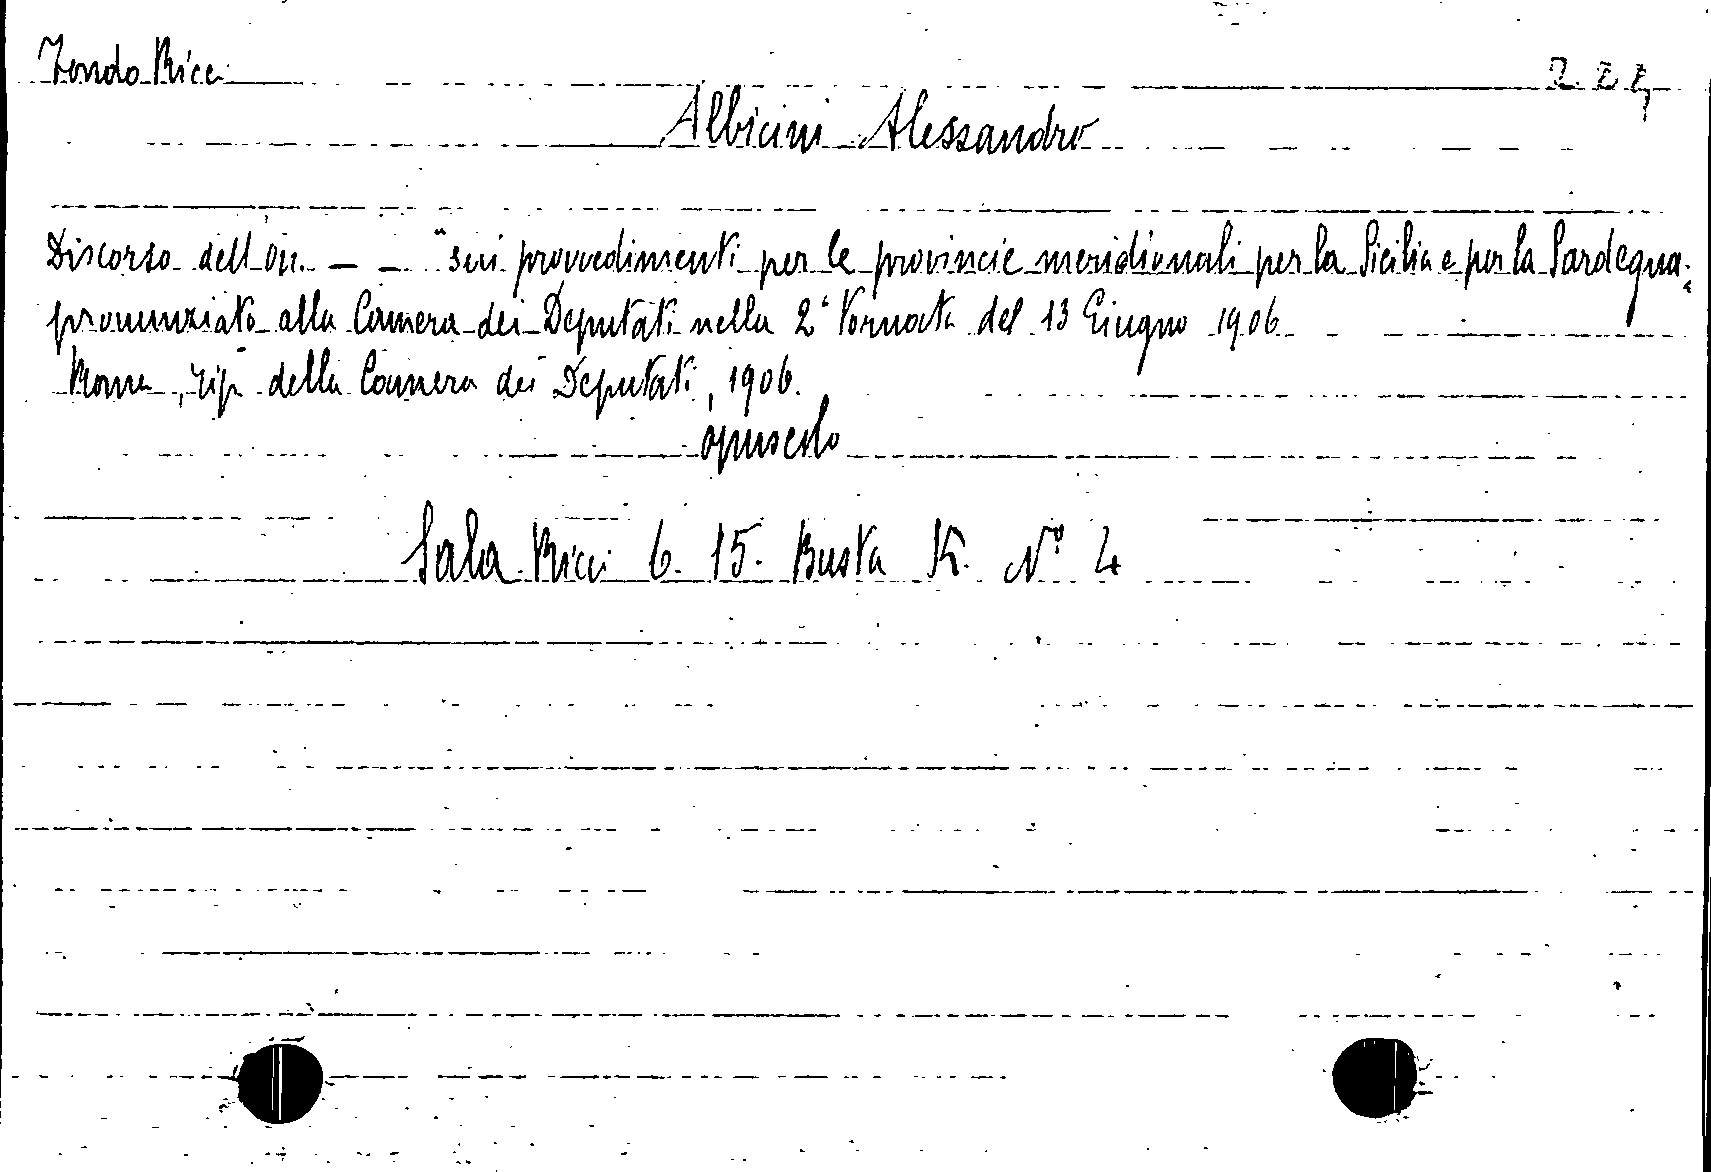 Fondo Ricci
Albicini Alessandro
Discorso dell'on. — — "sui provvedimenti per le provincie meridionali per la Sicilia e per la Sardegna"
pronunziato alla Camera dei Deputati nella 2ª Tornata del 13 Giugno 1906
Roma, Tip. della Camera dei Deputati, 1906.
opuscolo
Sala Ricci 6. 15. Busta K. Nº 4